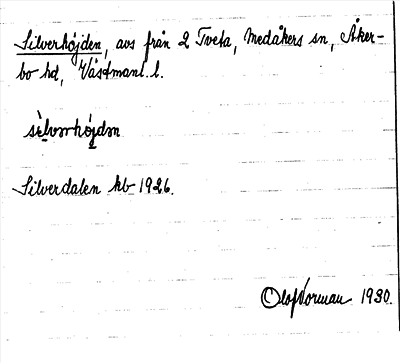 Silverhöjden, avs från 2 Tveta, Medåkers sn, Åker-
bo hd, Västmanl. l.
Silverdalen kb 1926.
Olof Norman 1930.